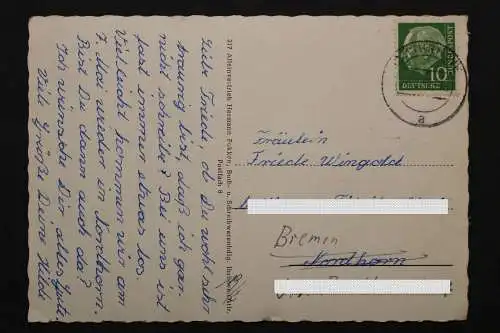 Liebe Friedel, ob Du wohl sehr
traurig bist, daß ich gar
nicht schreibe? Bei uns ist
fast immer etwas los.
Vielleicht kommen wir am
7. Mai wieder in Nordhorn.
Bist Du dann auch da?
Ich wünsche Dir alles Gute.
Viele Grüße Deine Hilde
217 Alleinvertrieb Hermann Fokken, Buch- u. Schreibwarenhdlg.
Postfach 8
10
DEUTSCHE
a
Fräulein
Friedel Wingold
Bremen
Nordhorn